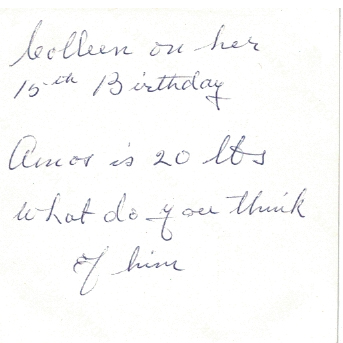 Colleen on her
15th Birthday
Amos is 20 lbs
what do you think
of him